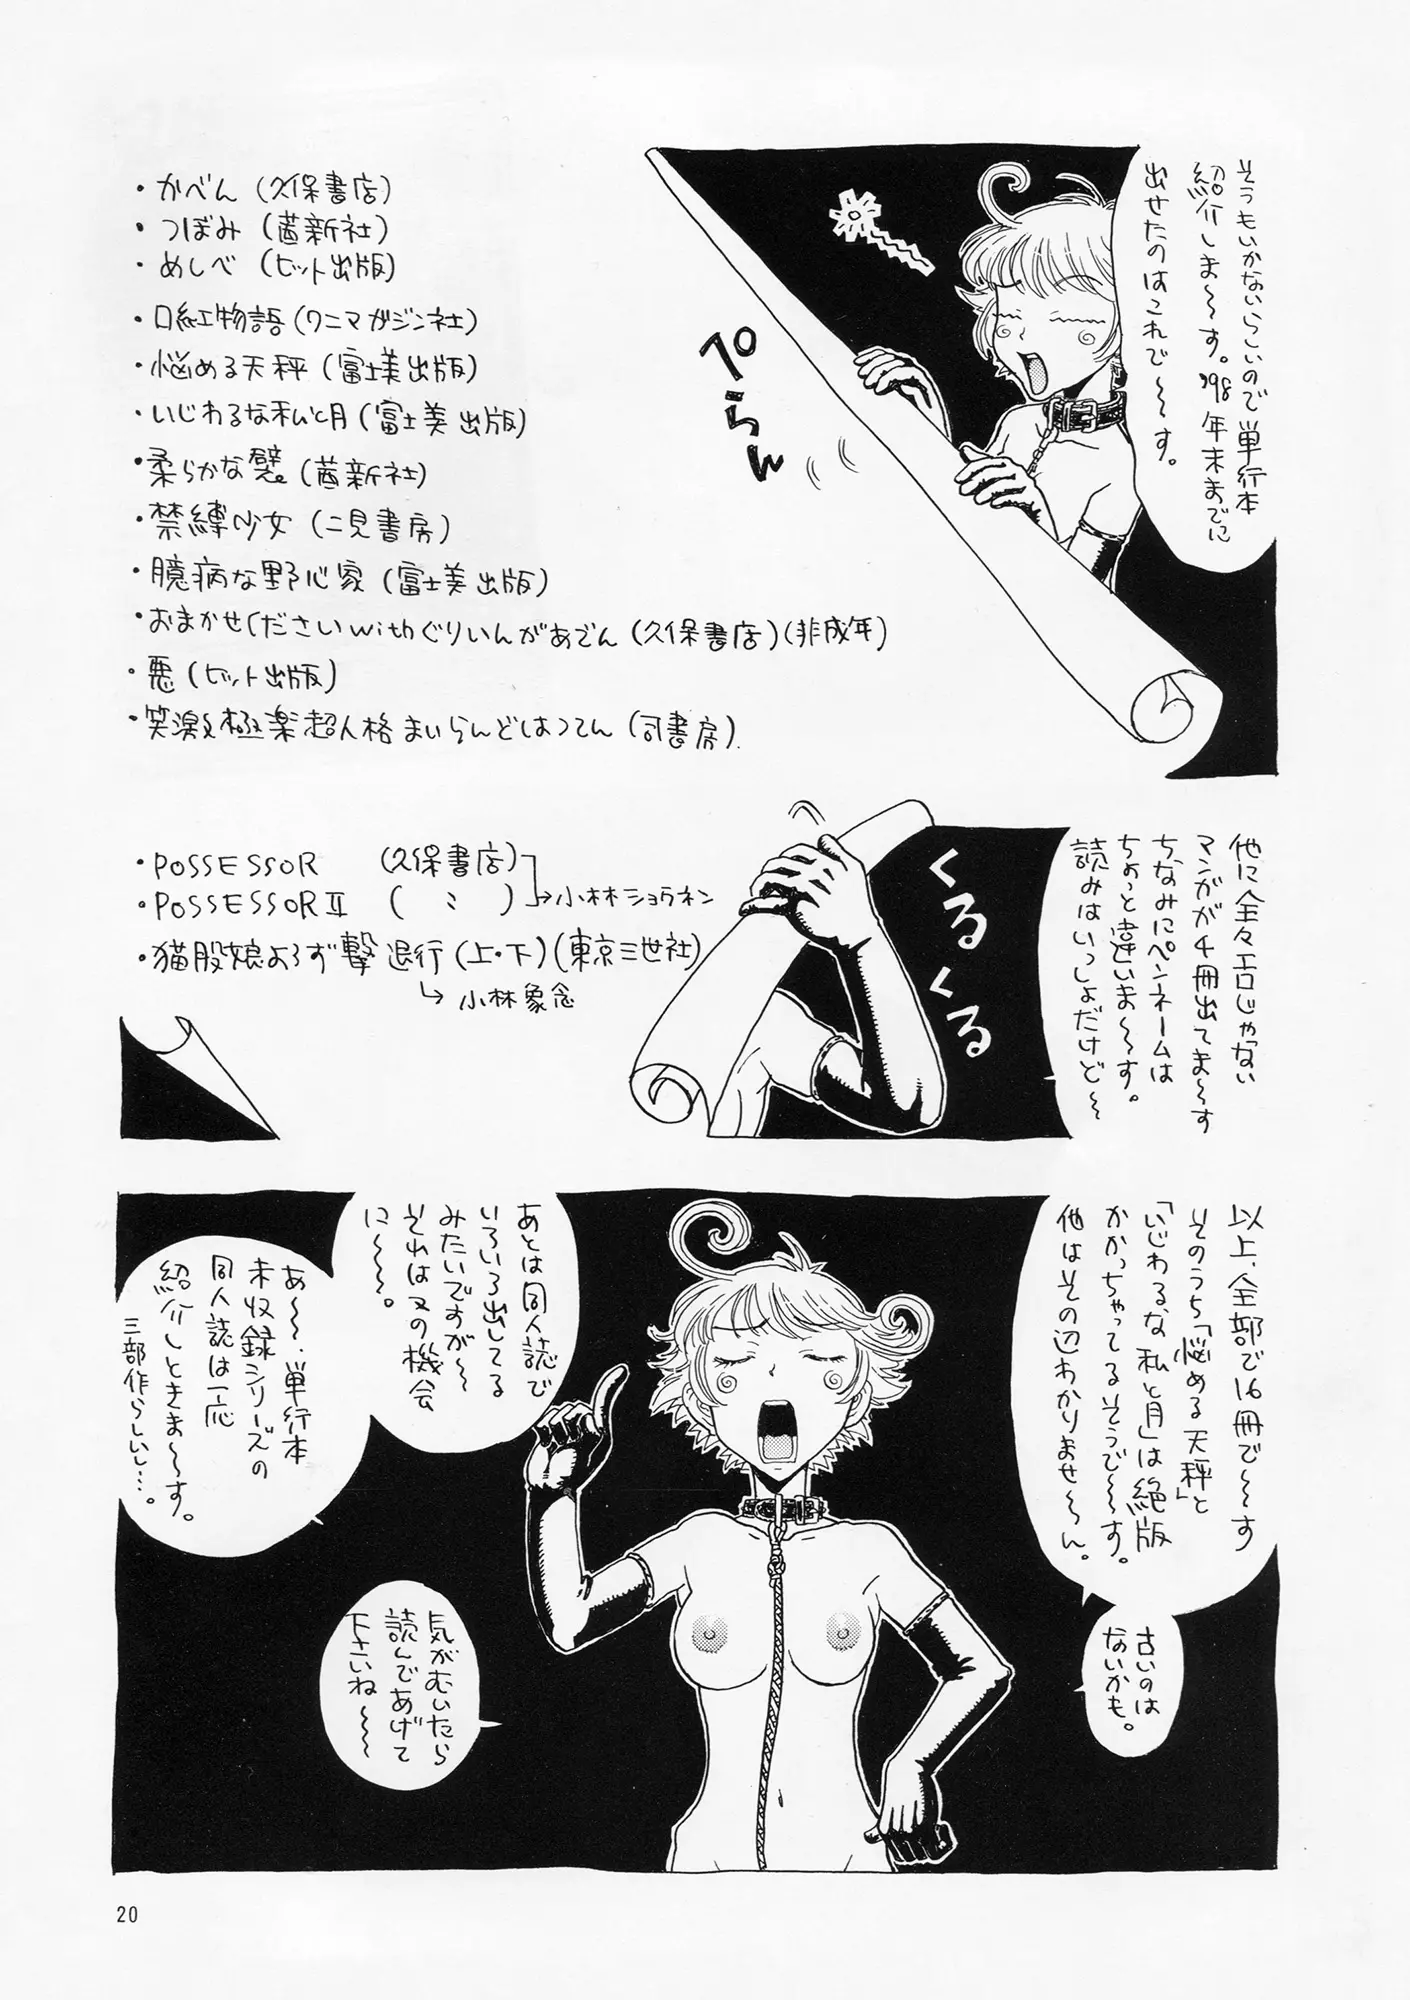 そうもいかないらしいので単行本
紹介しま〜〜す。'98年末までに
出せたのはこれで〜〜す。
ぺらん
・かべん(久保書店)
・つぼみ(茜新社)
・めしべ(ヒット出版)
・口紅物語(ワニマガジン社)
・悩める天秤(富士美出版)
・いじわるな私と月(富士美出版)
・柔らかな躄。(茜新社)
・禁縛少女(二見書房)
・臆病な野心家(富士美出版)
・おまかせくださいwithぐりいんがあでん(久保書店)(非成年)
・悪(ヒット出版)
・笑激極楽超人格まいらんどはつでん(司書房)
他に全々エロじゃない
マンガが4冊出てま〜〜す
ちなみにペンネームは
ちょっと違いま〜〜す。
読みはいっしょだけど〜
くるくる
・POSSESSOR (久保書店)
・POSSESSORⅡ ( 〃 )
→小林ショウネン
・猫股娘よろず撃退行(上・下)(東京三世社)
→小林象念
以上、全部で16冊で〜〜す
そのうち「悩める天秤」と
「いじわるな私と月」は絶版
かかっちゃってるそうで〜〜す。
他はその辺わかりませ〜〜ん。
古いのは
ないかも。
あとは同人誌で
いろいろ出してる
みたいですが〜
それは又の機会
に〜〜。
あ〜〜、単行本
未収録シリーズの
同人誌は一応
紹介しときま〜〜す。
三部作らしいし…。
気がむいたら
読んであげて
下さいね〜〜
20